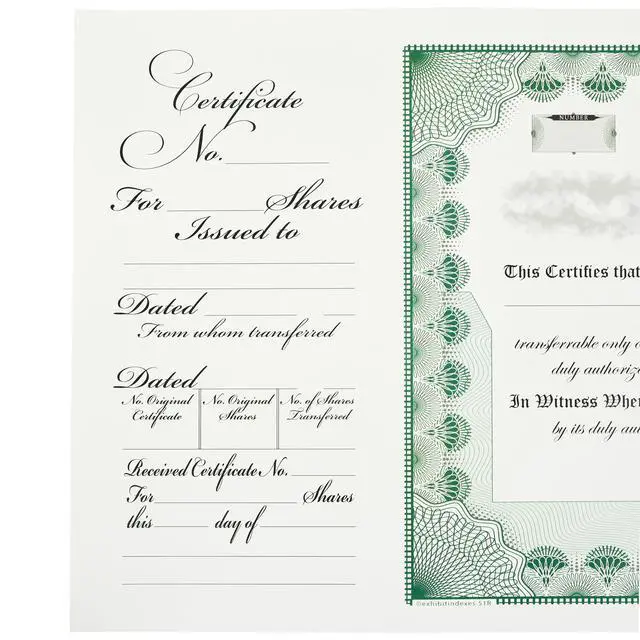 Certificate
No.
For Shares
Issued to
Dated
From whom transferred
Dated
No. Original Certificate
No. Original Shares
No. of Shares Transferred
Received Certificate No.
For Shares
this day of
NUMBER
This Certifies that
transferrable only
duly authoriz
In Witness Whe
by its duly au
©exhibitindexes 51R